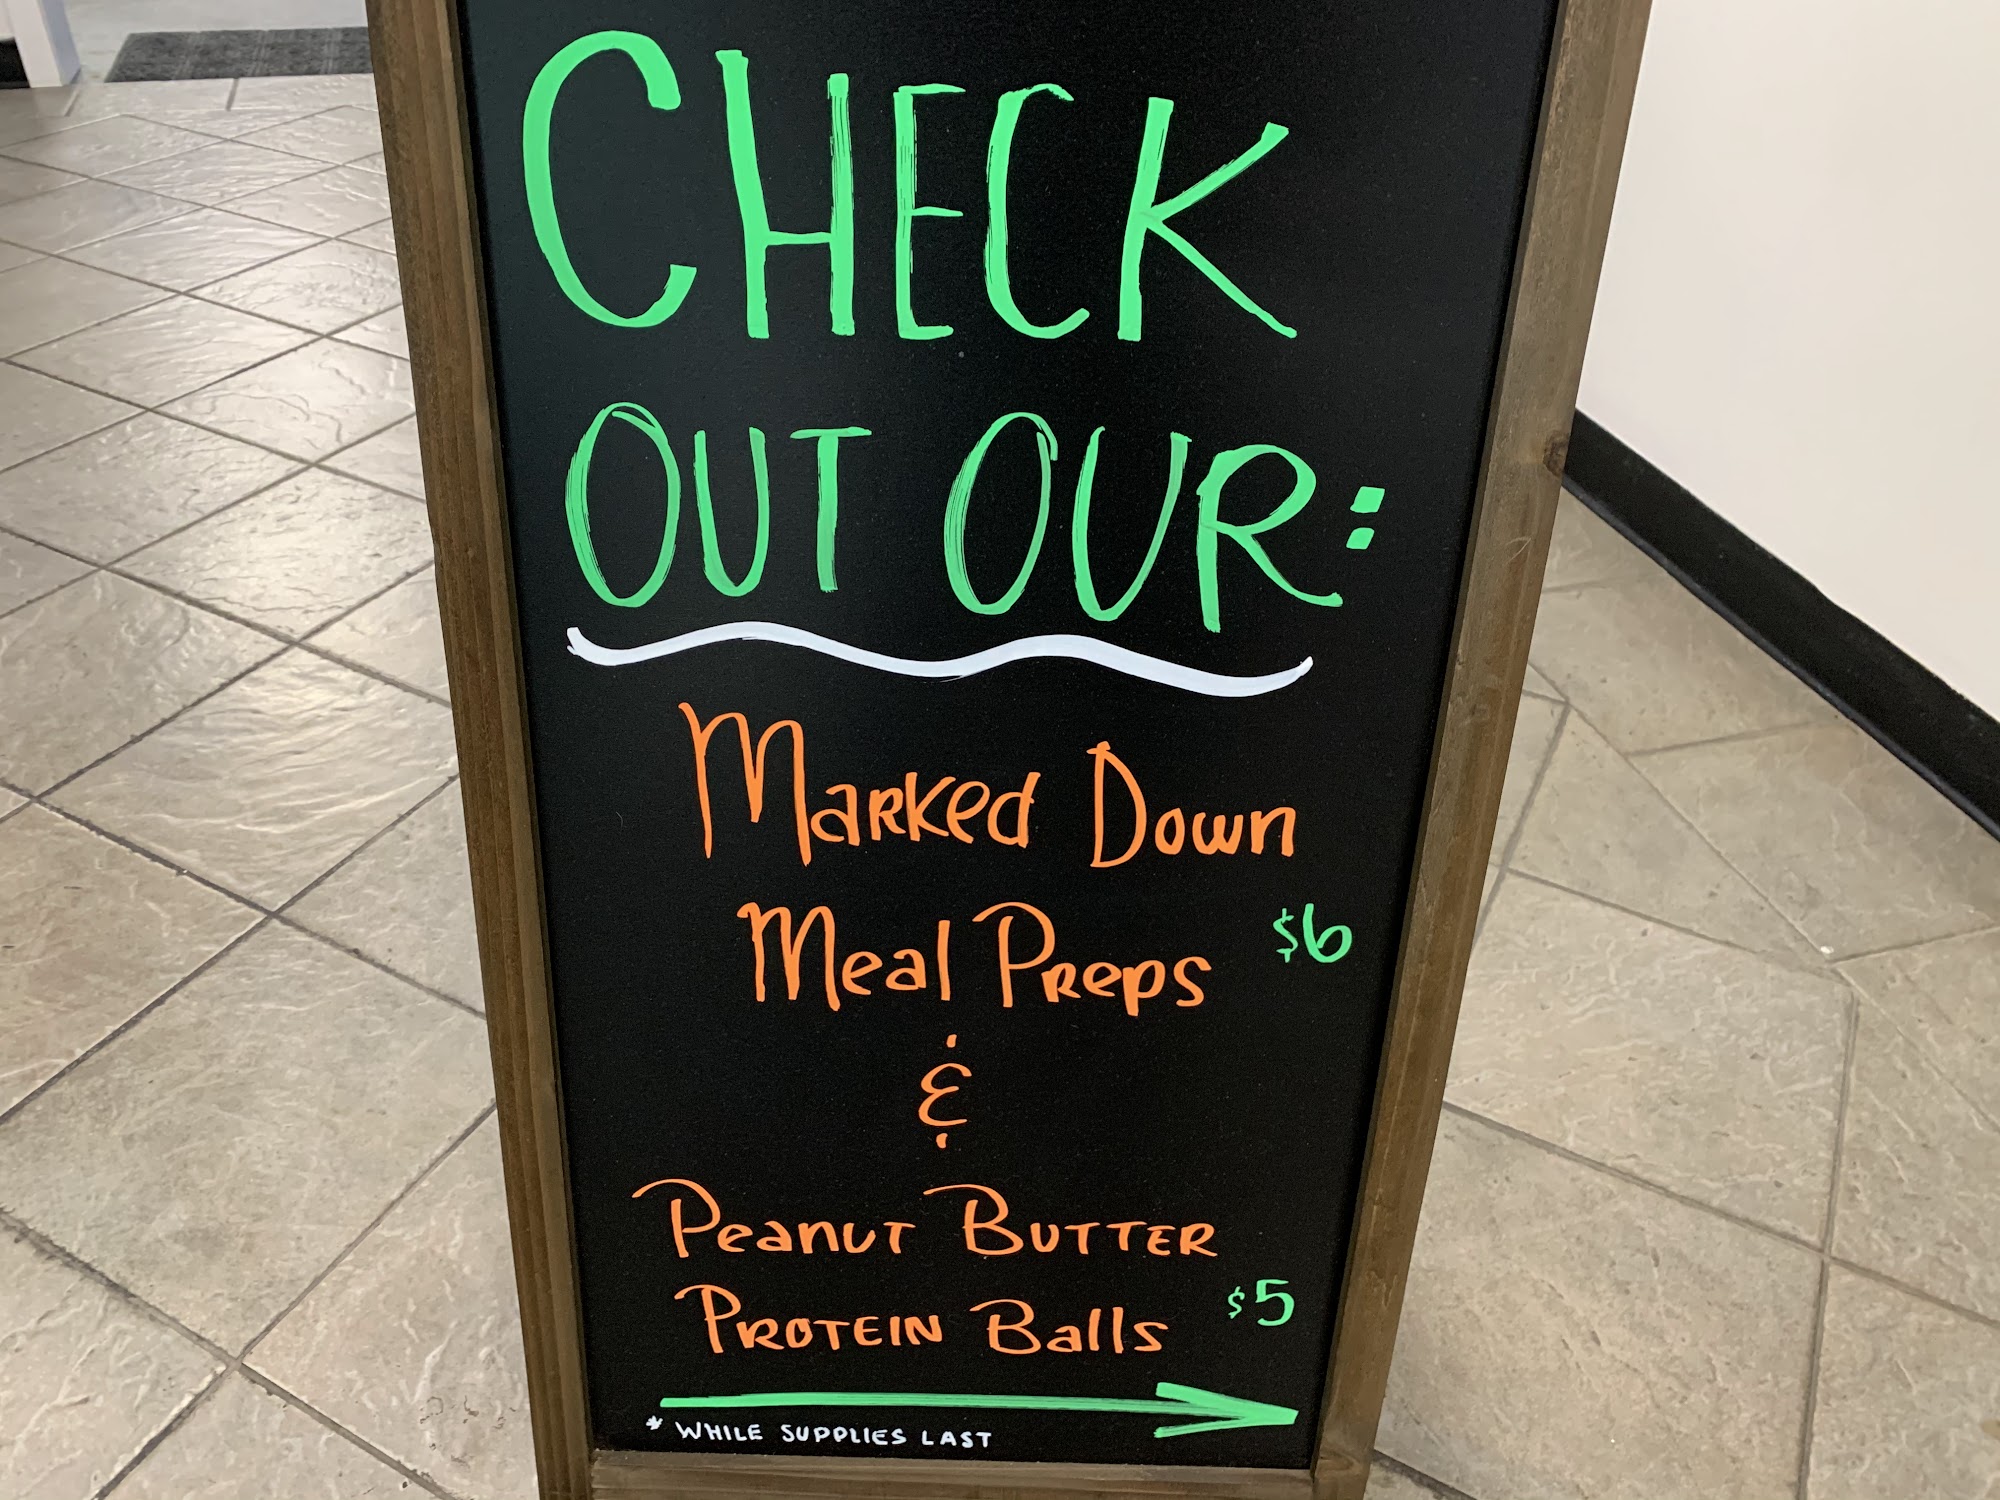 CHECK
OUT OUR:
Marked Down
Meal Preps $6
&
Peanut Butter
Protein Balls $5
* WHILE SUPPLIES LAST